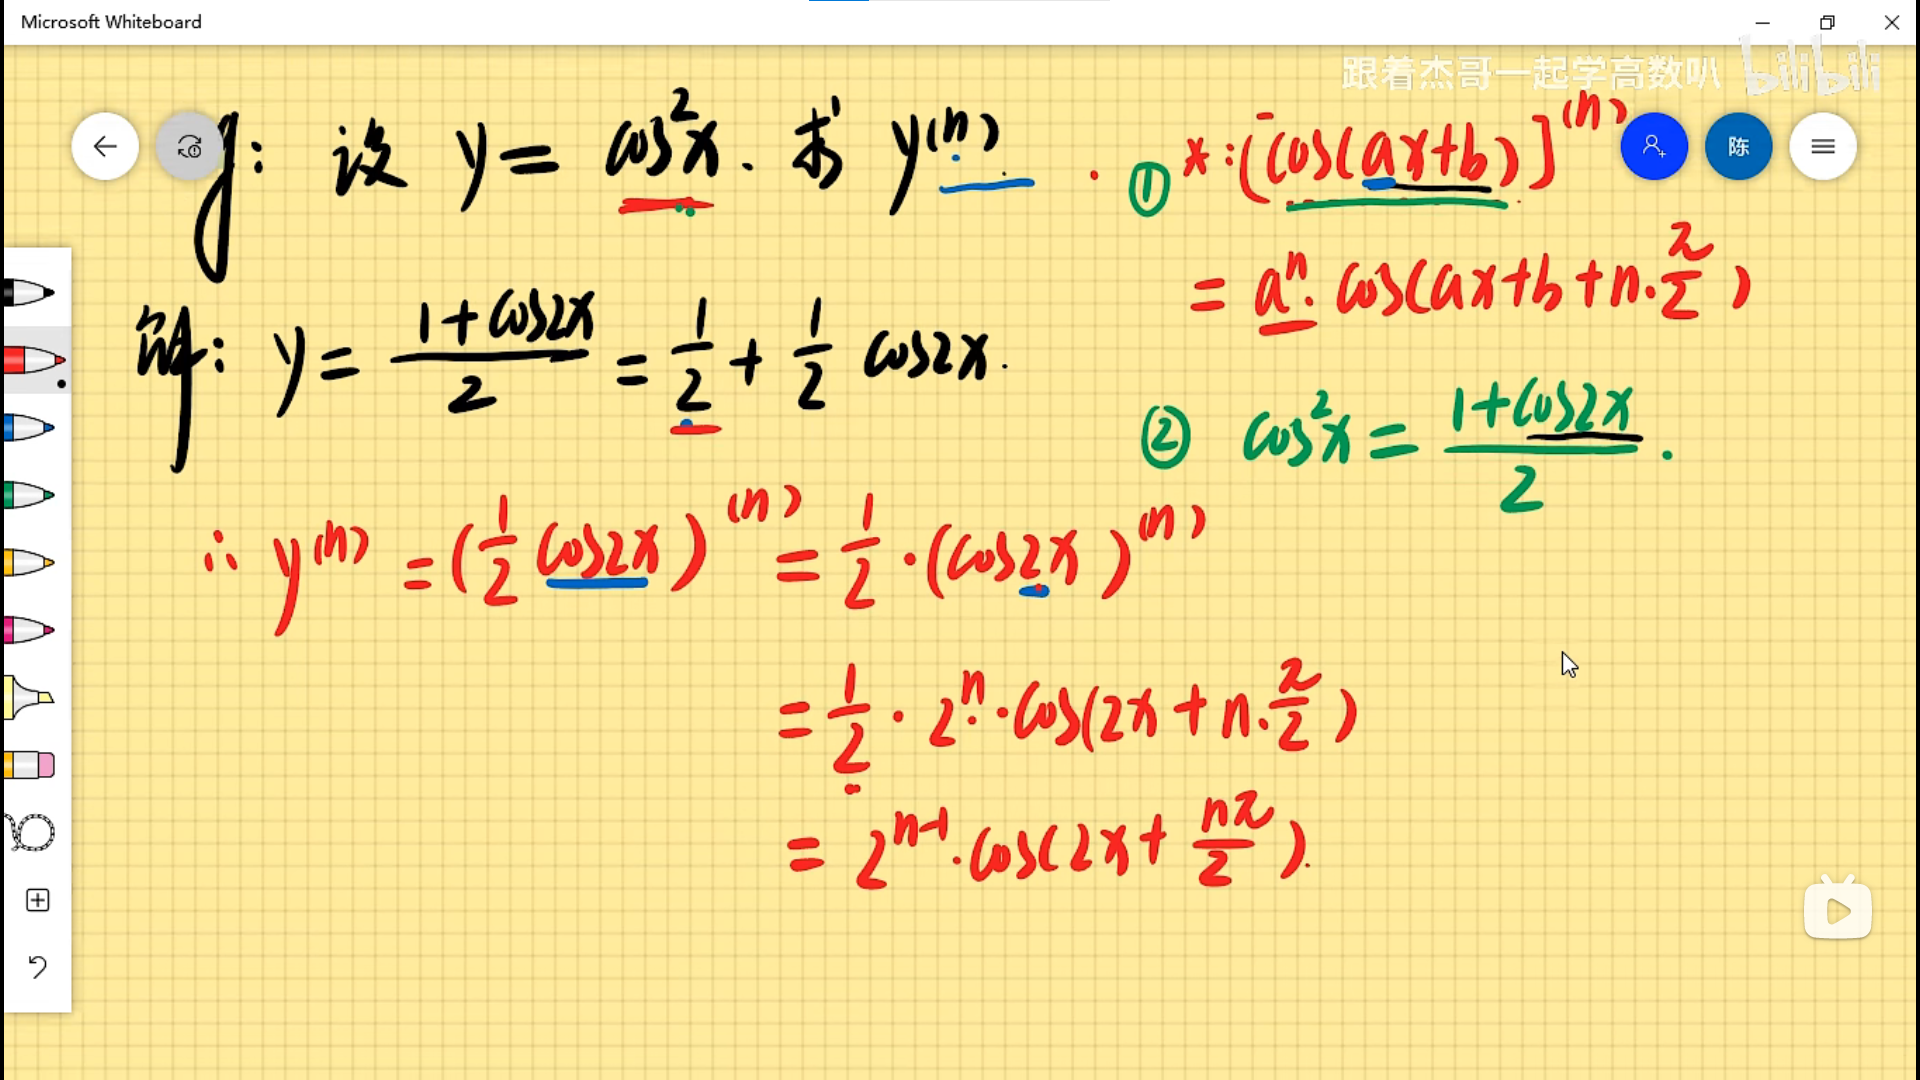 Microsoft Whiteboard
跟着杰哥一起学高数叭 bilibili
陈
设 y = cos²x. 求 y⁽ⁿ⁾
① *: [cos(ax+b)]⁽ⁿ⁾
= aⁿ·cos(ax+b+n·π/2)
解: y = (1+cos2x)/2 = 1/2 + 1/2 cos2x.
② cos²x = (1+cos2x)/2.
∴ y⁽ⁿ⁾ = (1/2 cos2x)⁽ⁿ⁾ = 1/2·(cos2x)⁽ⁿ⁾
= 1/2·2ⁿ·cos(2x+n·π/2)
= 2ⁿ⁻¹·cos(2x+nπ/2).